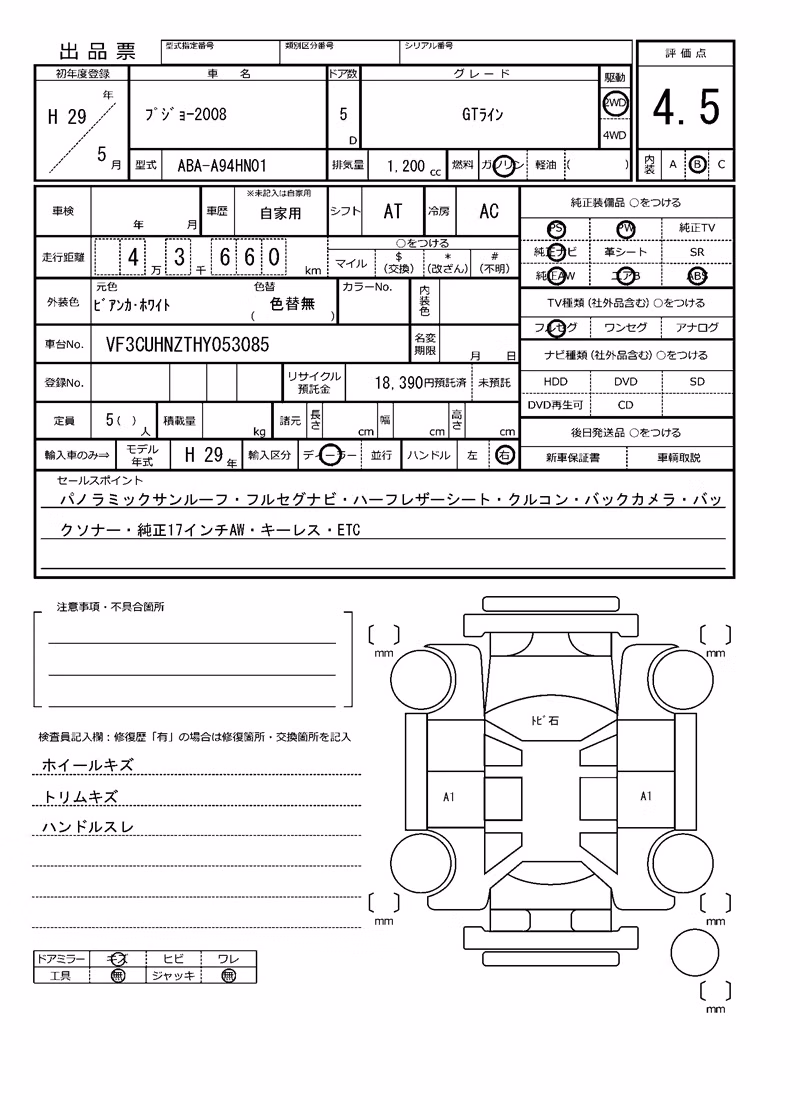 出品票
型式指定番号 類別区分番号 シリアル番号
評価点
4.5
内装 A B C
初年度登録 車名 ドア数 グレード 駆動
H 29 年 5 月
プジョー2008 5 D GTライン
2WD
4WD
型式 ABA-A94HN01 排気量 1,200 cc 燃料 ガソリン 軽油 ( )
車検 年 月 車歴 ※未記入は自家用 自家用 シフト AT 冷房 AC
走行距離 4 万 3 千 6 6 0 km
○をつける
マイル $(交換) *(改ざん) #(不明)
外装色 元色 ビアンカ・ホワイト 色替 色替無 ( ) カラーNo. 内装色
車台No. VF3CUHNZTHY053085 名変期限 月 日
登録No. リサイクル預託金 18,390円預託済 未預託
定員 5( ) 人 積載量 kg 諸元 長さ cm 幅 cm 高さ cm
輸入車のみ⇒ モデル年式 H 29 年 輸入区分 ディーラー 並行 ハンドル 左 右
純正装備品 ○をつける
PS PW 純正TV
純正ナビ 革シート SR
純正AW エアB ABS
TV種類(社外品含む)○をつける
フルセグ ワンセグ アナログ
ナビ種類(社外品含む)○をつける
HDD DVD SD
DVD再生可 CD
後日発送品 ○をつける
新車保証書 車輌取説
セールスポイント
パノラミックサンルーフ・フルセグナビ・ハーフレザーシート・クルコン・バックカメラ・バッ
クソナー・純正17インチAW・キーレス・ETC
注意事項・不具合箇所
検査員記入欄:修復歴「有」の場合は修復箇所・交換箇所を記入
ホイールキズ
トリムキズ
ハンドルスレ
ドアミラー キズ ヒビ ワレ
工具 無 ジャッキ 無
mm mm
トビ石
A1 A1
mm mm
mm